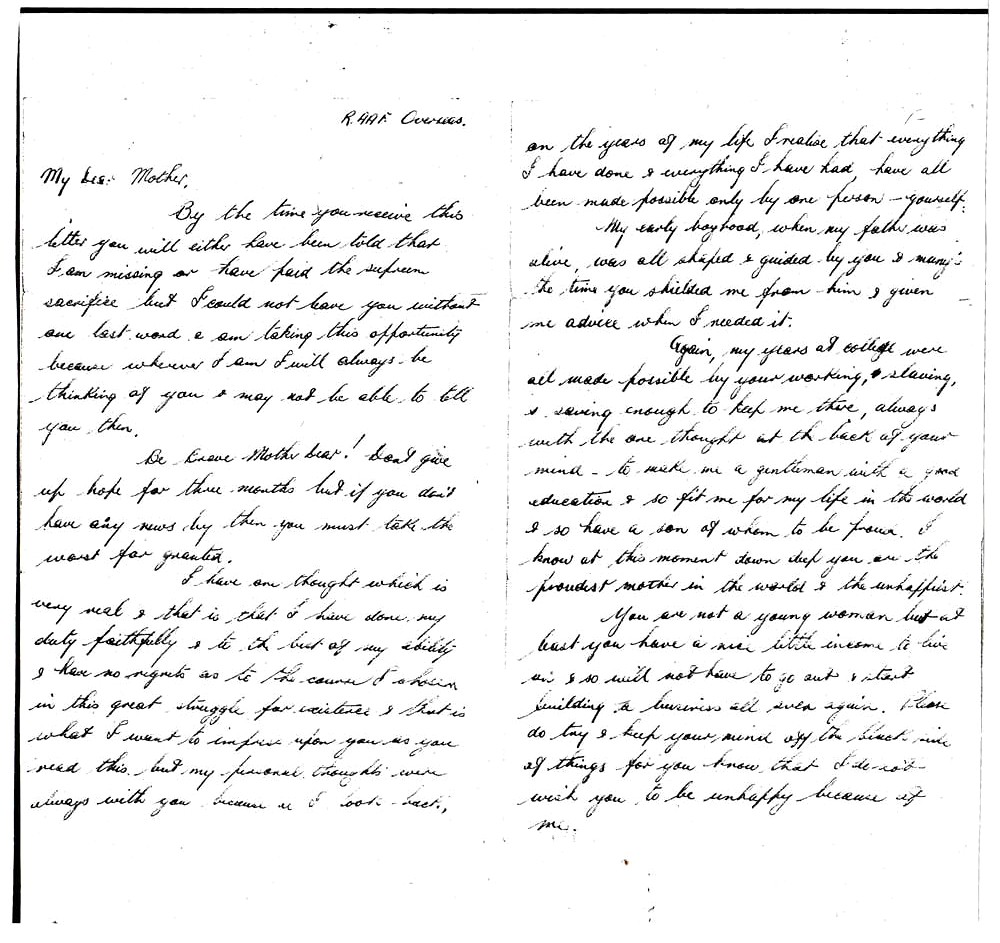 R.AAF Overseas.
My Dear Mother,
By the time you receive this
letter you will either have been told that
I am missing or have paid the supreme
sacrifice but I could not leave you without
one last word & am taking this opportunity
because wherever I am I will always be
thinking of you & may not be able to tell
you then.
Be brave Mother Dear! Don't give
up hope for three months but if you don't
have any news by then you must take the
worst for granted.
I have one thought which is
very real & that is that I have done my
duty faithfully & to the best of my ability
& have no regrets as to the course I chosen
in this great struggle for existence & that is
what I want to impress upon you as you
read this but my personal thoughts were
always with you because as I look back,
on the years of my life I realise that everything
I have done & everything I have had, have all
been made possible only by one person – yourself.
My early boyhood, when my father was
alive, was all shaped & guided by you & many's
the time you shielded me from him & given
me advice when I needed it.
Again, my years at college were
all made possible by your working, & slaving,
& saving enough to keep me there, always
with the one thought at the back of your
mind – to make me a gentleman with a good
education & so fit me for my life in the world
& so have a son of whom to be proud. I
know at this moment down deep you are the
proudest mother in the world & the unhappiest.
You are not a young woman but at
least you have a nice little income to live
on & so will not have to go out & start
building a business all over again. Please
do try & keep your mind off the black side
of things for you know that I do not
wish you to be unhappy because of
me.